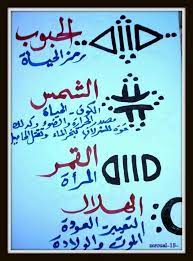 الحبوب
رمز الحياة
الشمس
الكون - الحياة
مصدر الحرارة والضوء وكذلك
القمر
المرأة
الهلال
التعبير - العودة
الموت والولادة
zoroual-15-